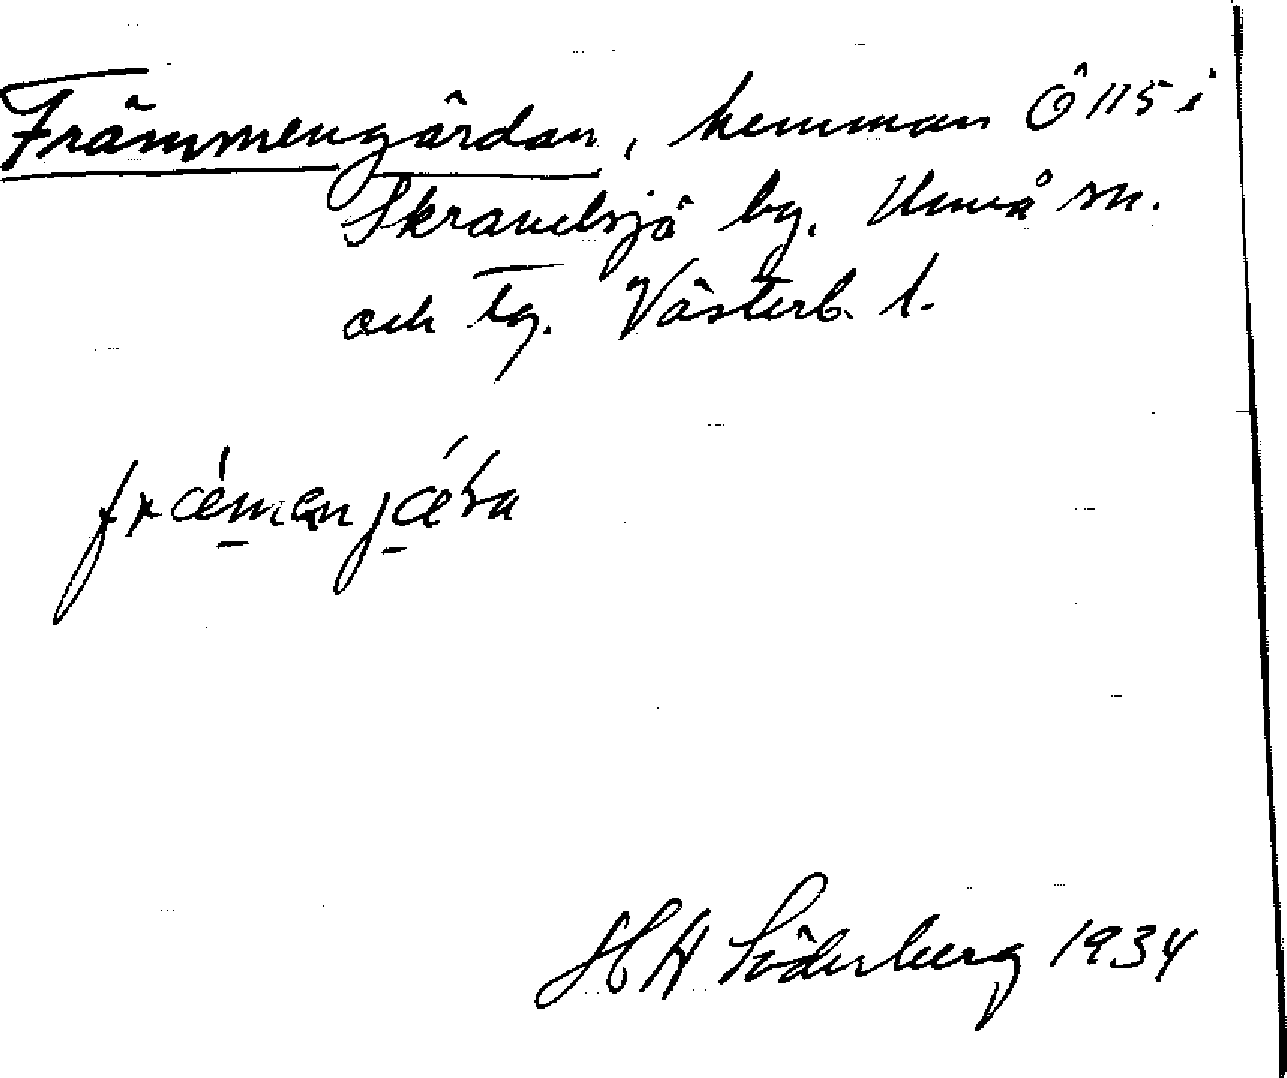 Främmengärdan, hemman Ö 115 i
Skravelsjö by. Umeå sn.
och tg. Västerb. l.
H H Söderberg 1934